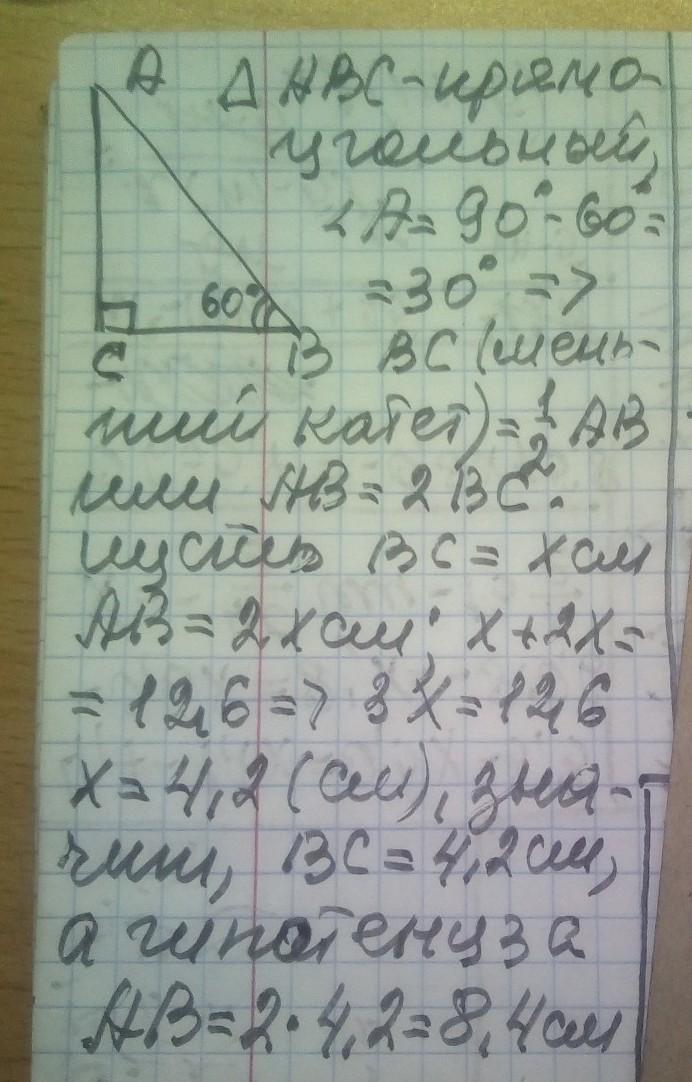 A ΔABC-прямо-
угольный,
∠A=90°-60°=
60° =30° =>
C B BC (мень-
ший катет)=1/2 AB
или AB=2BC.
пусть BC= x см
AB=2x см; x+2x=
=12,6 => 3x=12,6
x=4,2(см), зна-
чит, BC=4,2см,
а гипотенуза
AB=2·4,2=8,4см